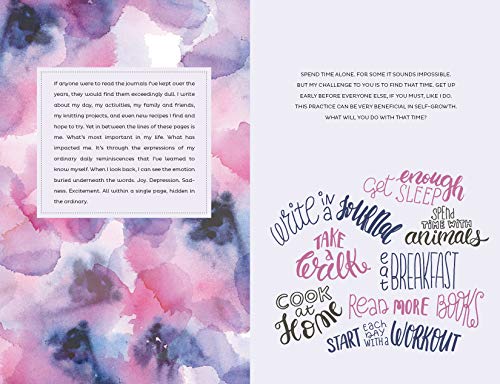 If anyone were to read the journals I've kept over the
years, they would find them exceedingly dull. I write
about my day, my activities, my family and friends,
my knitting projects, and even new recipes I find and
hope to try. Yet in between the lines of these pages is
me. What's most important in my life. What has
impacted me. It's through the expressions of my
ordinary daily reminiscences that I've learned to
know myself. When I look back, I can see the emotion
buried underneath the words. Joy. Depression. Sad-
ness. Excitement. All within a single page, hidden in
the ordinary.
SPEND TIME ALONE. FOR SOME IT SOUNDS IMPOSSIBLE.
BUT MY CHALLENGE TO YOU IS TO FIND THAT TIME. GET UP
EARLY BEFORE EVERYONE ELSE, IF YOU MUST, LIKE I DO.
THIS PRACTICE CAN BE VERY BENEFICIAL IN SELF-GROWTH.
WHAT WILL YOU DO WITH THAT TIME?
get enough
SLEEP
WRITE IN
a JOURNAL
SPEND
TIME WITH
animals
TAKE
a
Walk
eat BREAKFAST
COOK
at
Home
Read MORE BOOKS
START EACH
DAY
WITH a WORKOUT